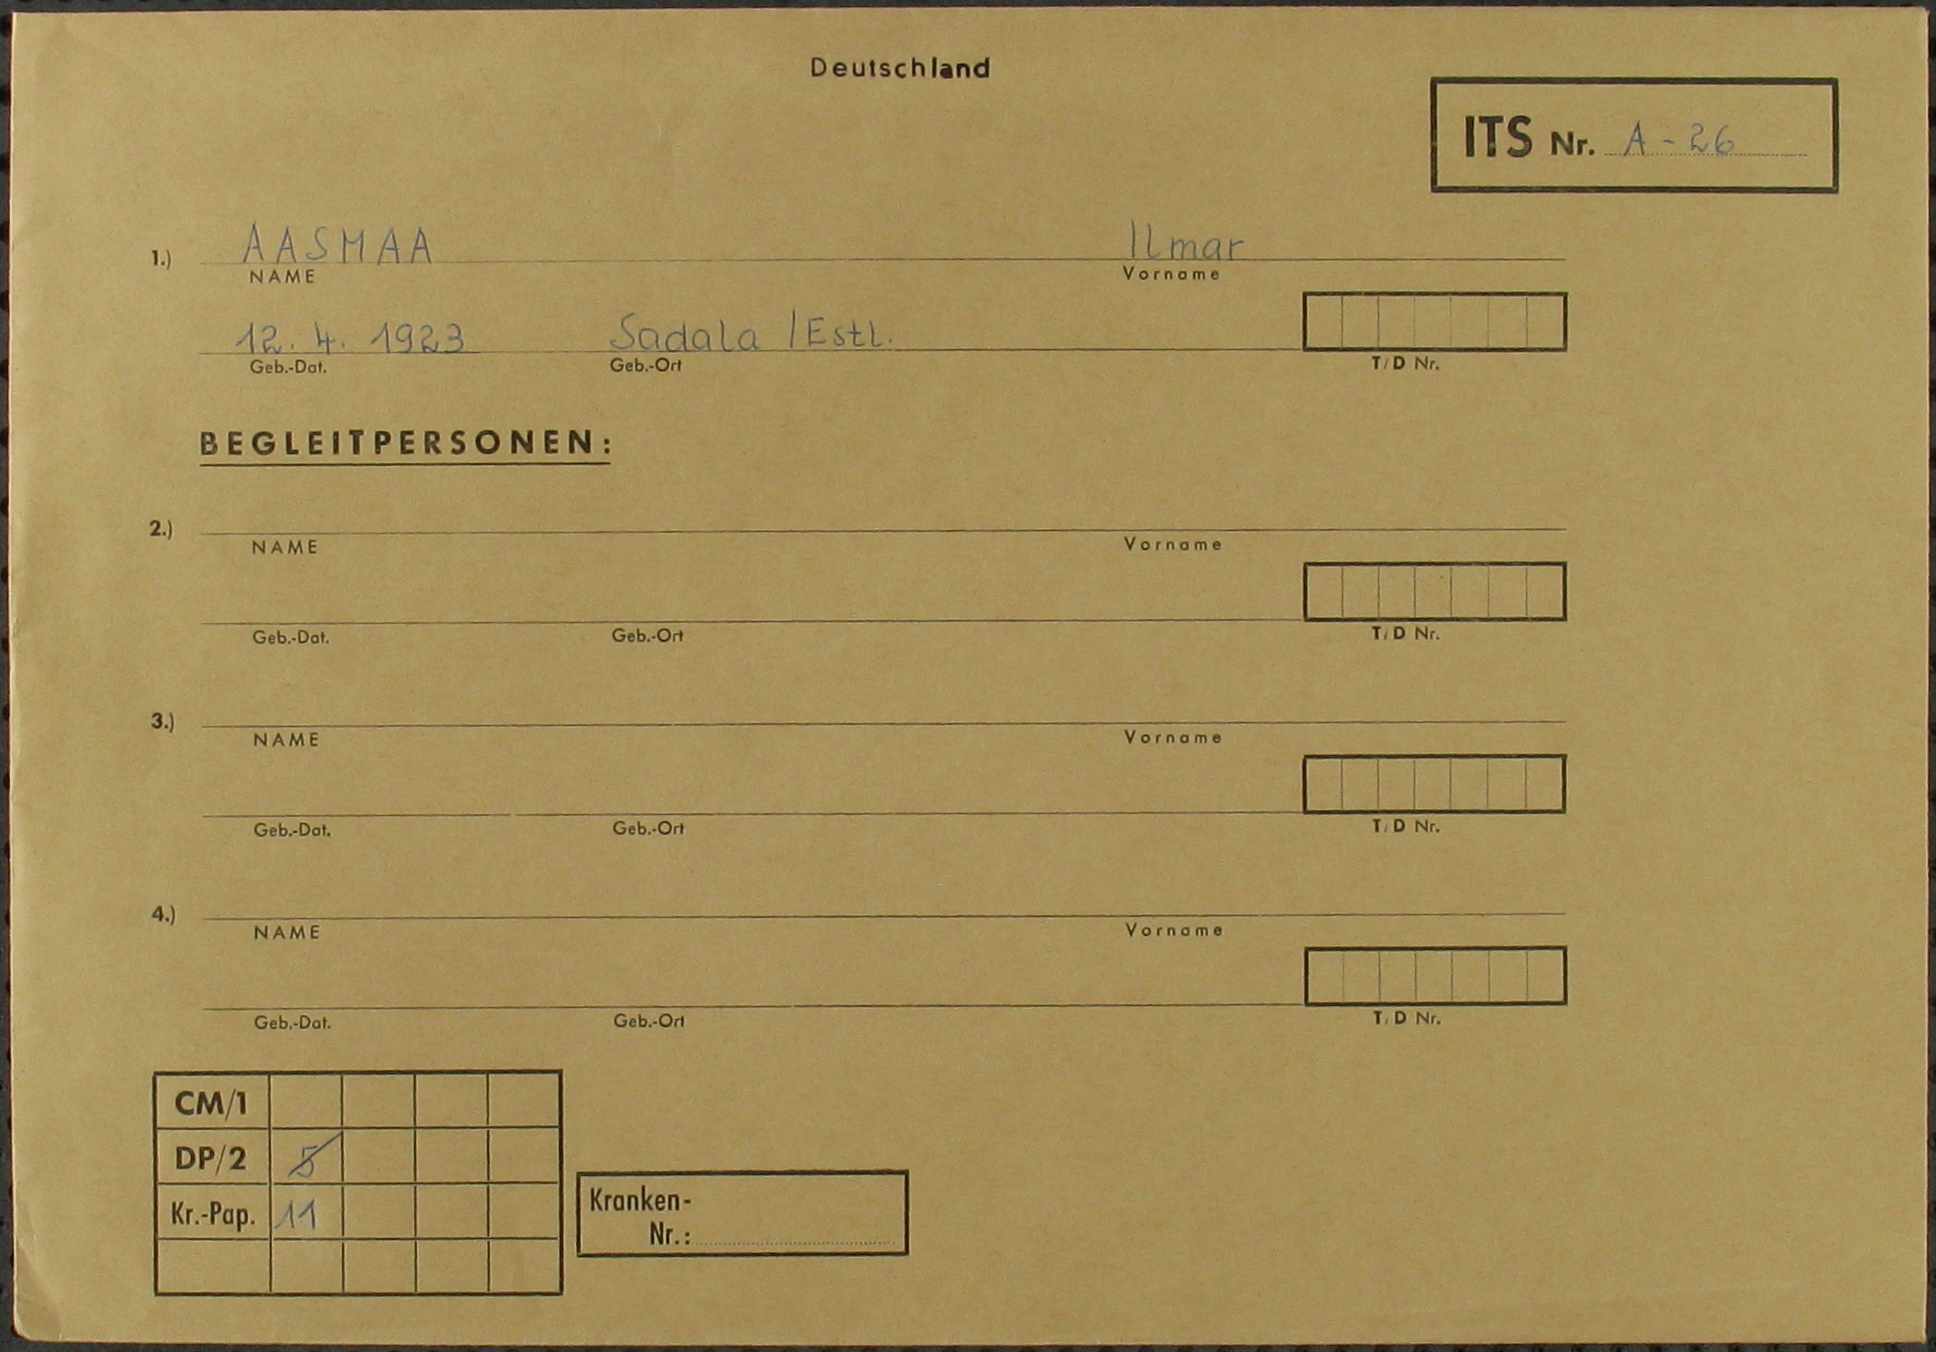 Deutschland
ITS Nr. A - 26
1.) AASMAA Ilmar
NAME Vorname
12. 4. 1923 Sadala /Estl.
Geb.-Dat. Geb.-Ort T/D Nr.
BEGLEITPERSONEN:
2.)
NAME Vorname
Geb.-Dat. Geb.-Ort T/D Nr.
3.)
NAME Vorname
Geb.-Dat. Geb.-Ort T/D Nr.
4.)
NAME Vorname
Geb.-Dat. Geb.-Ort T/D Nr.
CM/1
DP/2 5
Kr.-Pap. 11
Kranken-
Nr.: